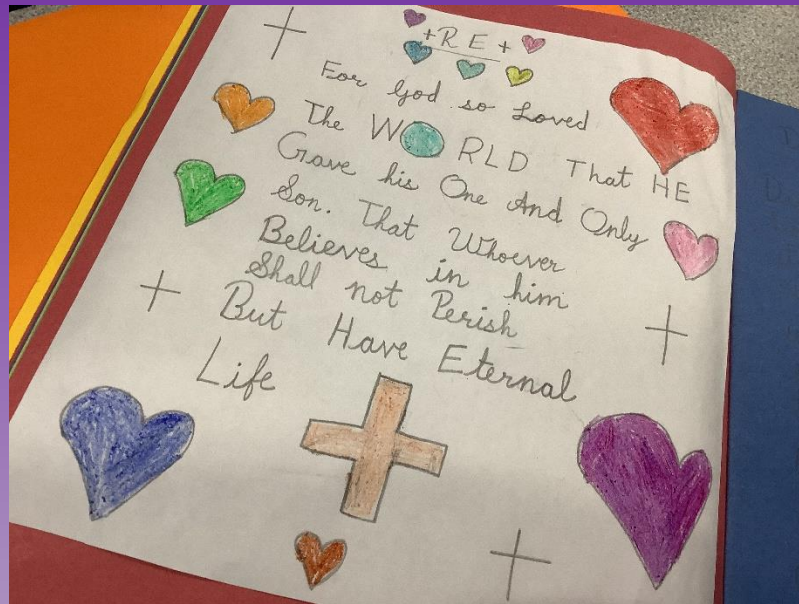 + R E +
For God so Loved
The WORLD That HE
Gave his One And Only
Son. That Whoever
Believes in him
Shall not Perish
But Have Eternal
Life